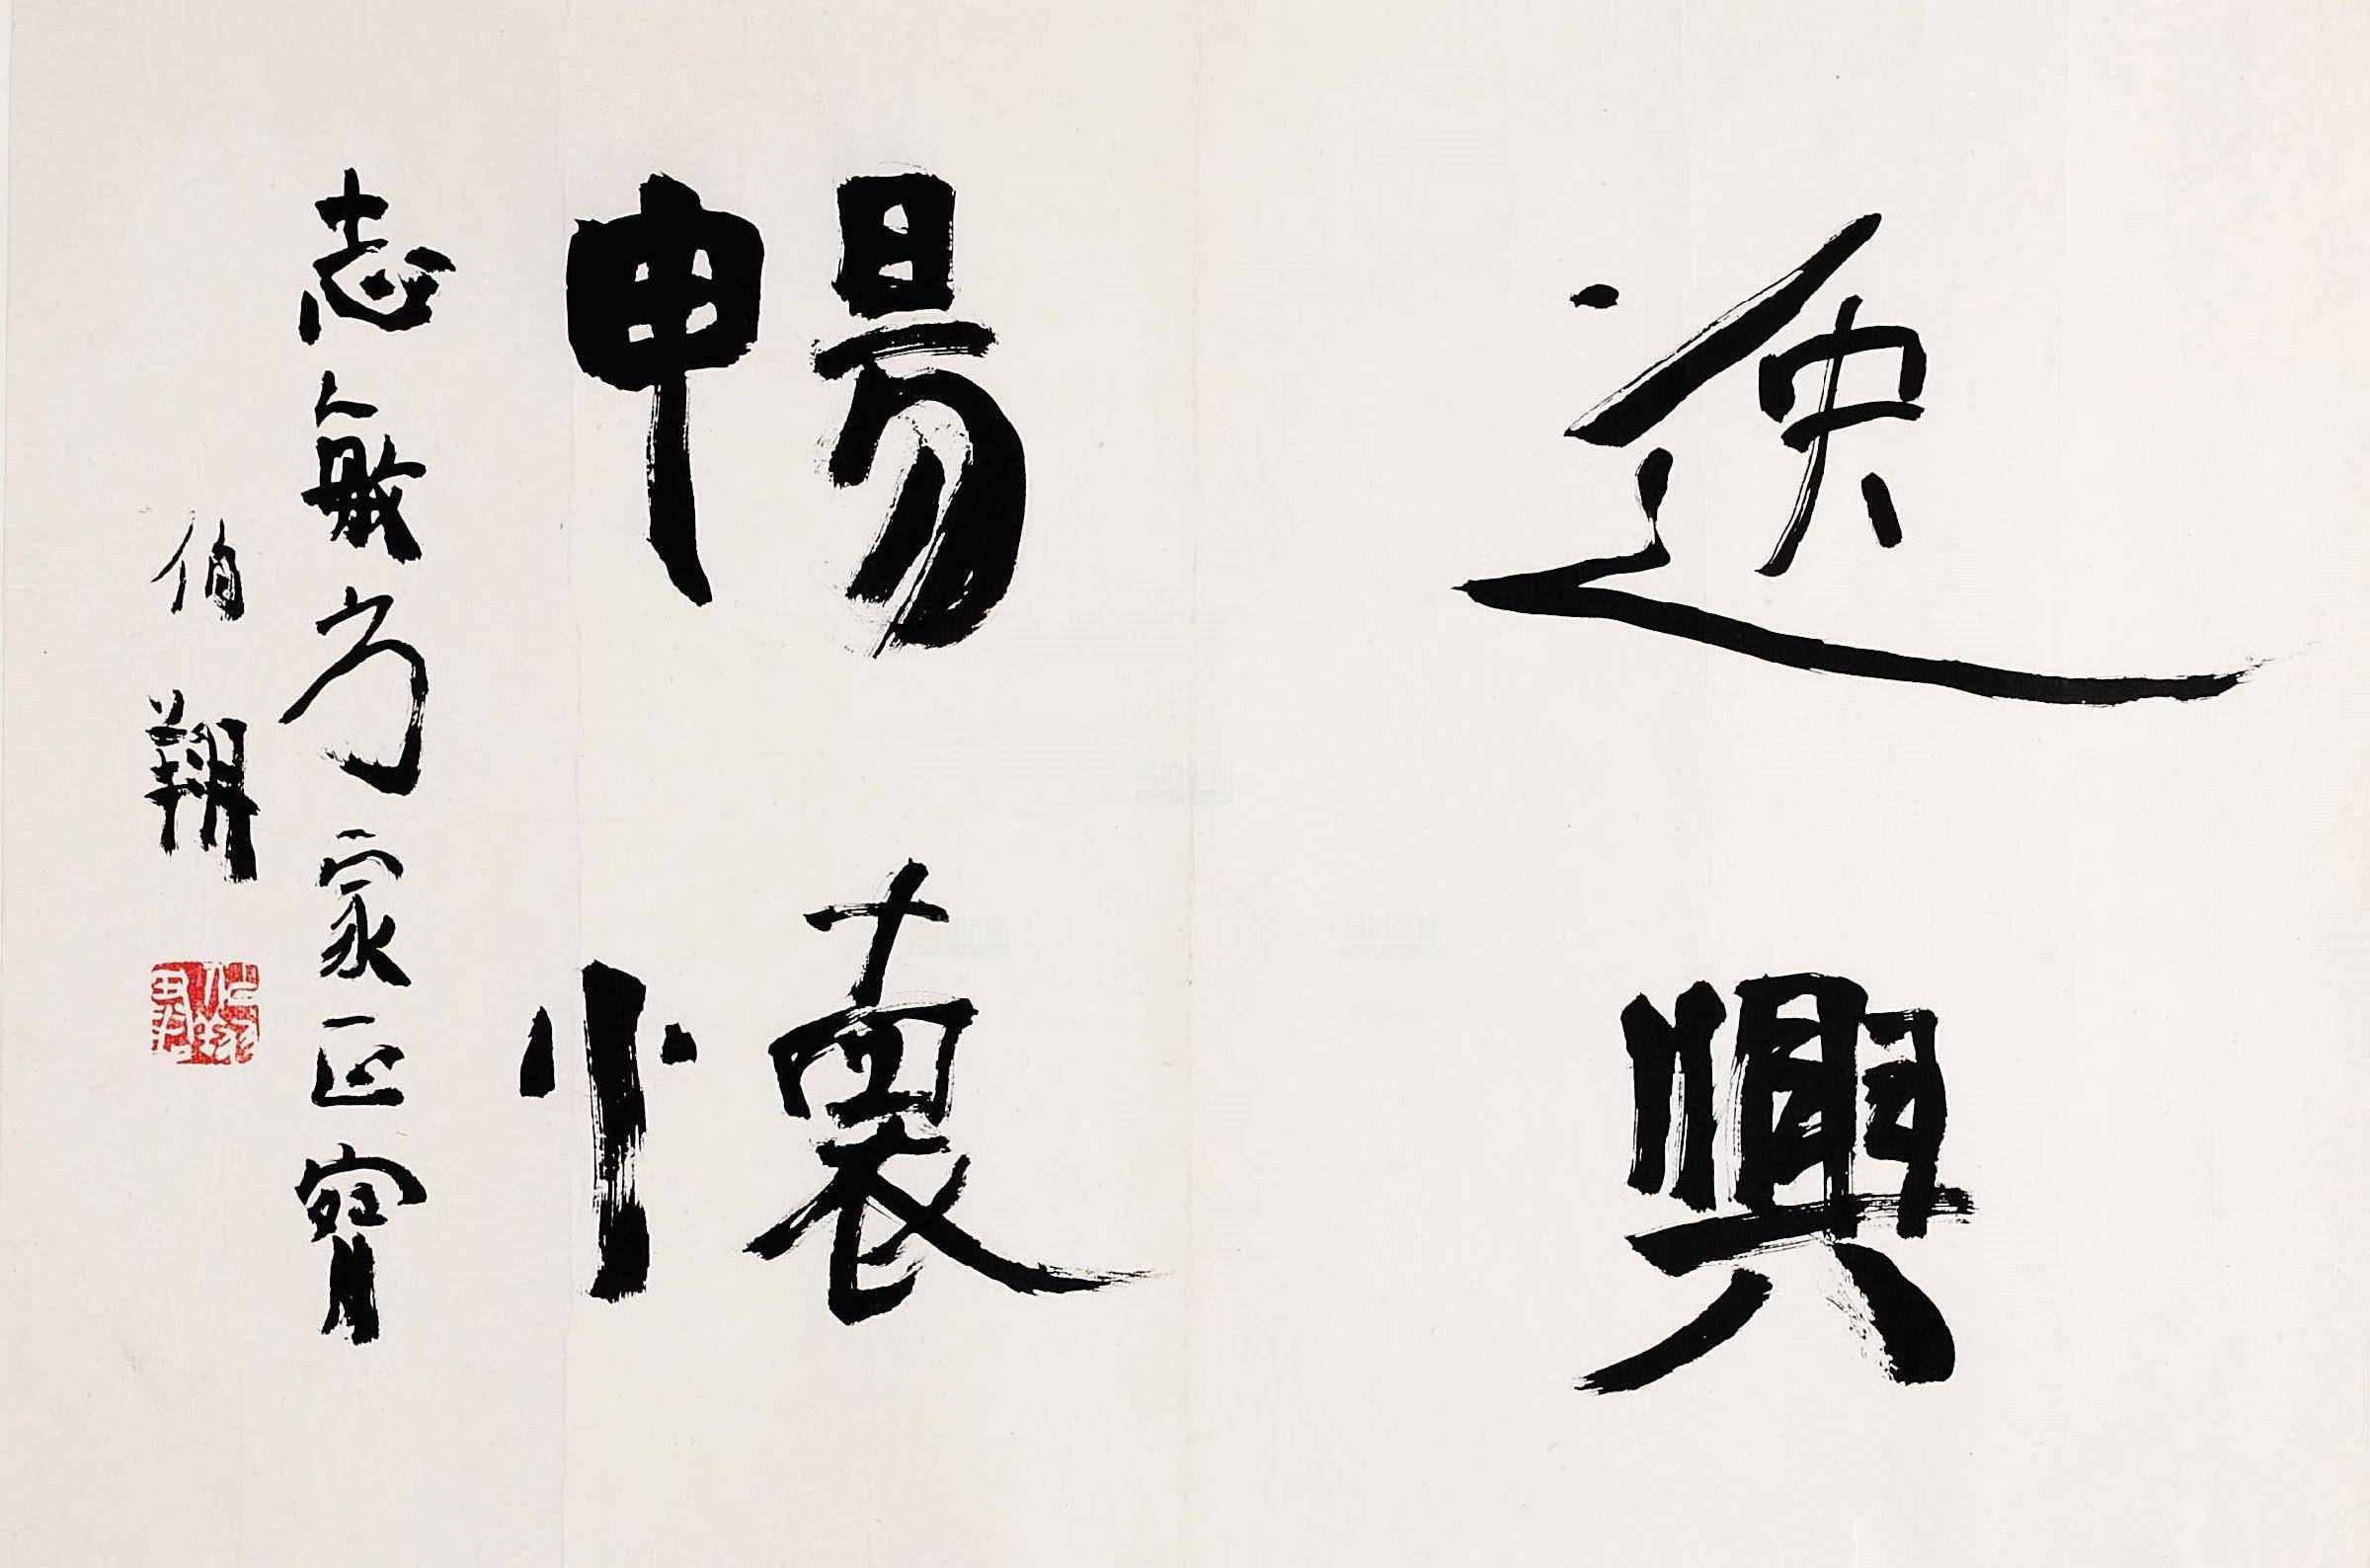 逸興
暢懷
志敏方家正腕
伯翔
易拍全球
易拍全球
易拍全球